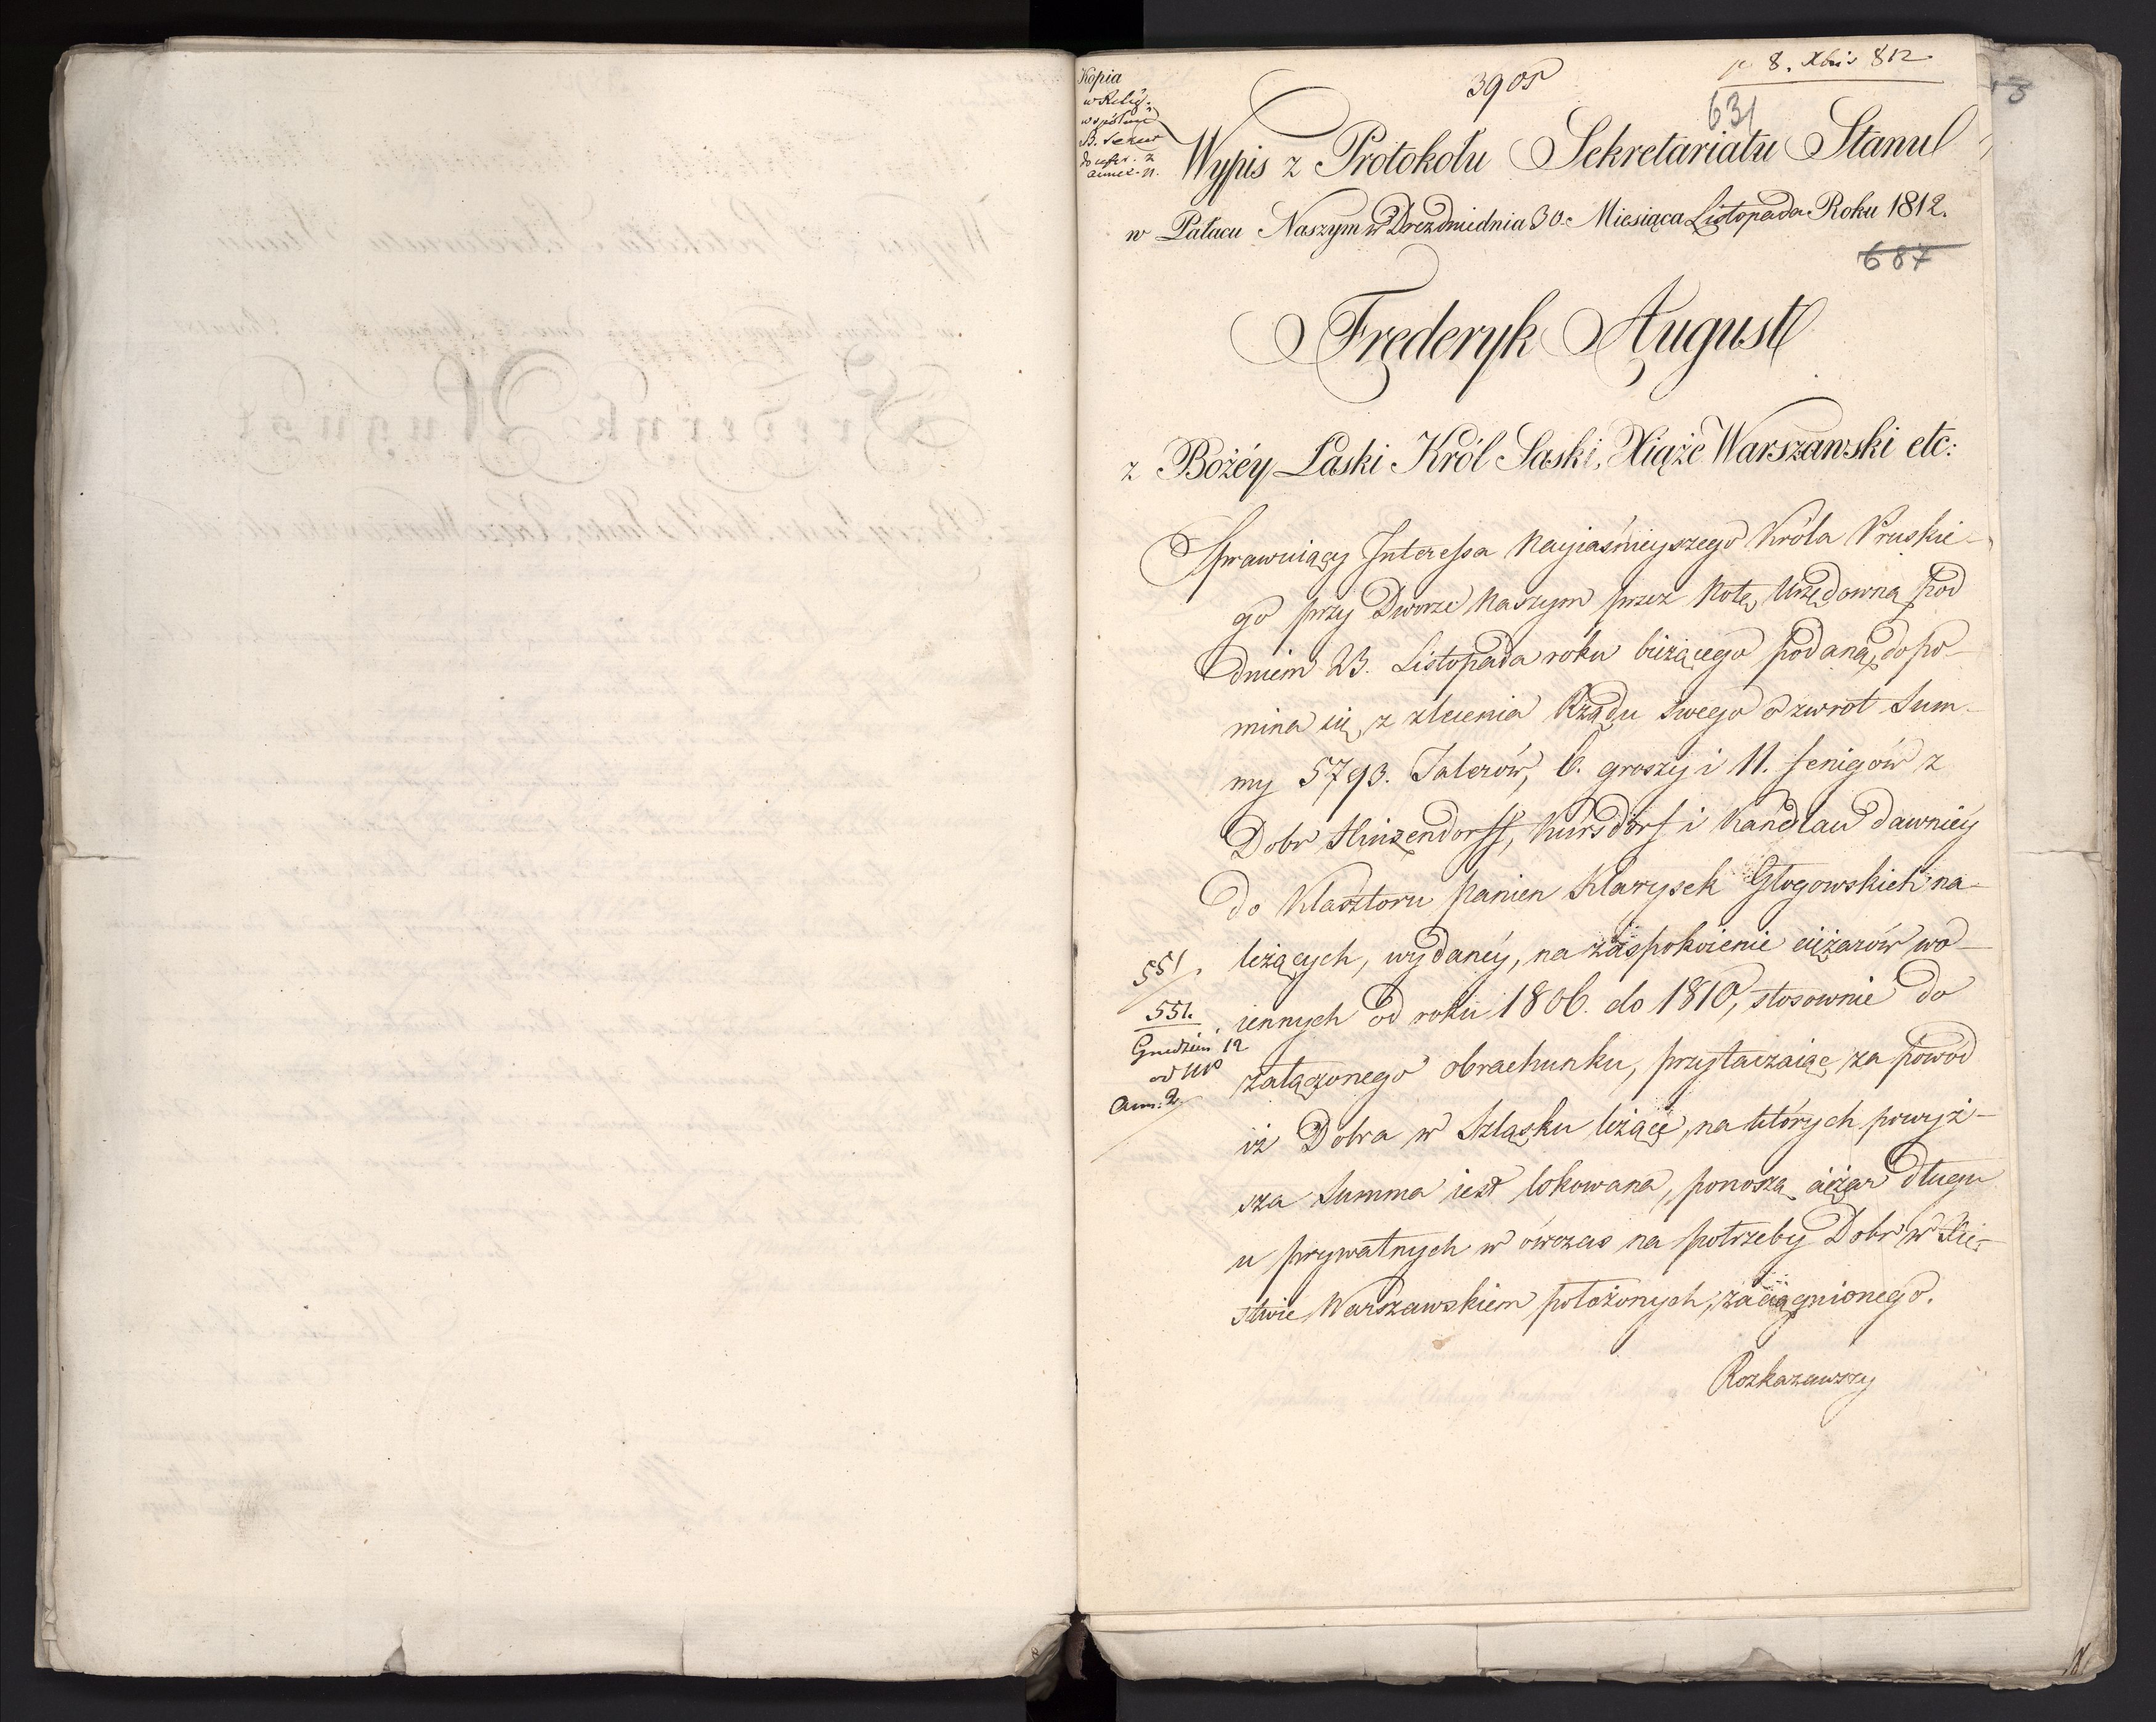 Kopia
w Relig.
wspólne
B. Sekret
do
annex. n.
3905
p 8. Xbris 812
631
Wypis z Protokołu Sekretariatu Stanu
w Pałacu Naszym w Dreznie dnia 30. Miesiąca Listopada Roku 1812.
687
Frederyk August
z Bożéy Łaski Król Saski, Xiąże Warszawski etc:
Sprawuiący Interessa Nayiaśnieyszego Króla Pruskie-
go przy Dworze Naszym przez Notę Urzędowną pod
dniem 23. Listopada roku bieżącego podaną, dopo-
mina się z zlecenia Rządu swego o zwrot Sum-
my 5793. Talerów, 6. groszy i 11. fenigów z
Dobr Hinzendorff, Kursdorf i Kandlau dawniey
do Klasztoru Panien Klarysek Głogowskich na-
leżących, wydaney, na zaspokoienie ciężarów wo-
iennych od roku 1806. do 1810, stosownie do
załączonego obrachunku, przytaczaiąc za powód
iż Dobra w Szląsku leżące, na których powyż-
sza Summa iest lokowana, ponoszą ciężar długu
u prywatnych w ówczas na potrzeby Dobr w Xię-
stwie Warszawskiem położonych, zaciągnionego.
Rozkazawszy
551.
551.
Grudzień 12
Ann. 2.